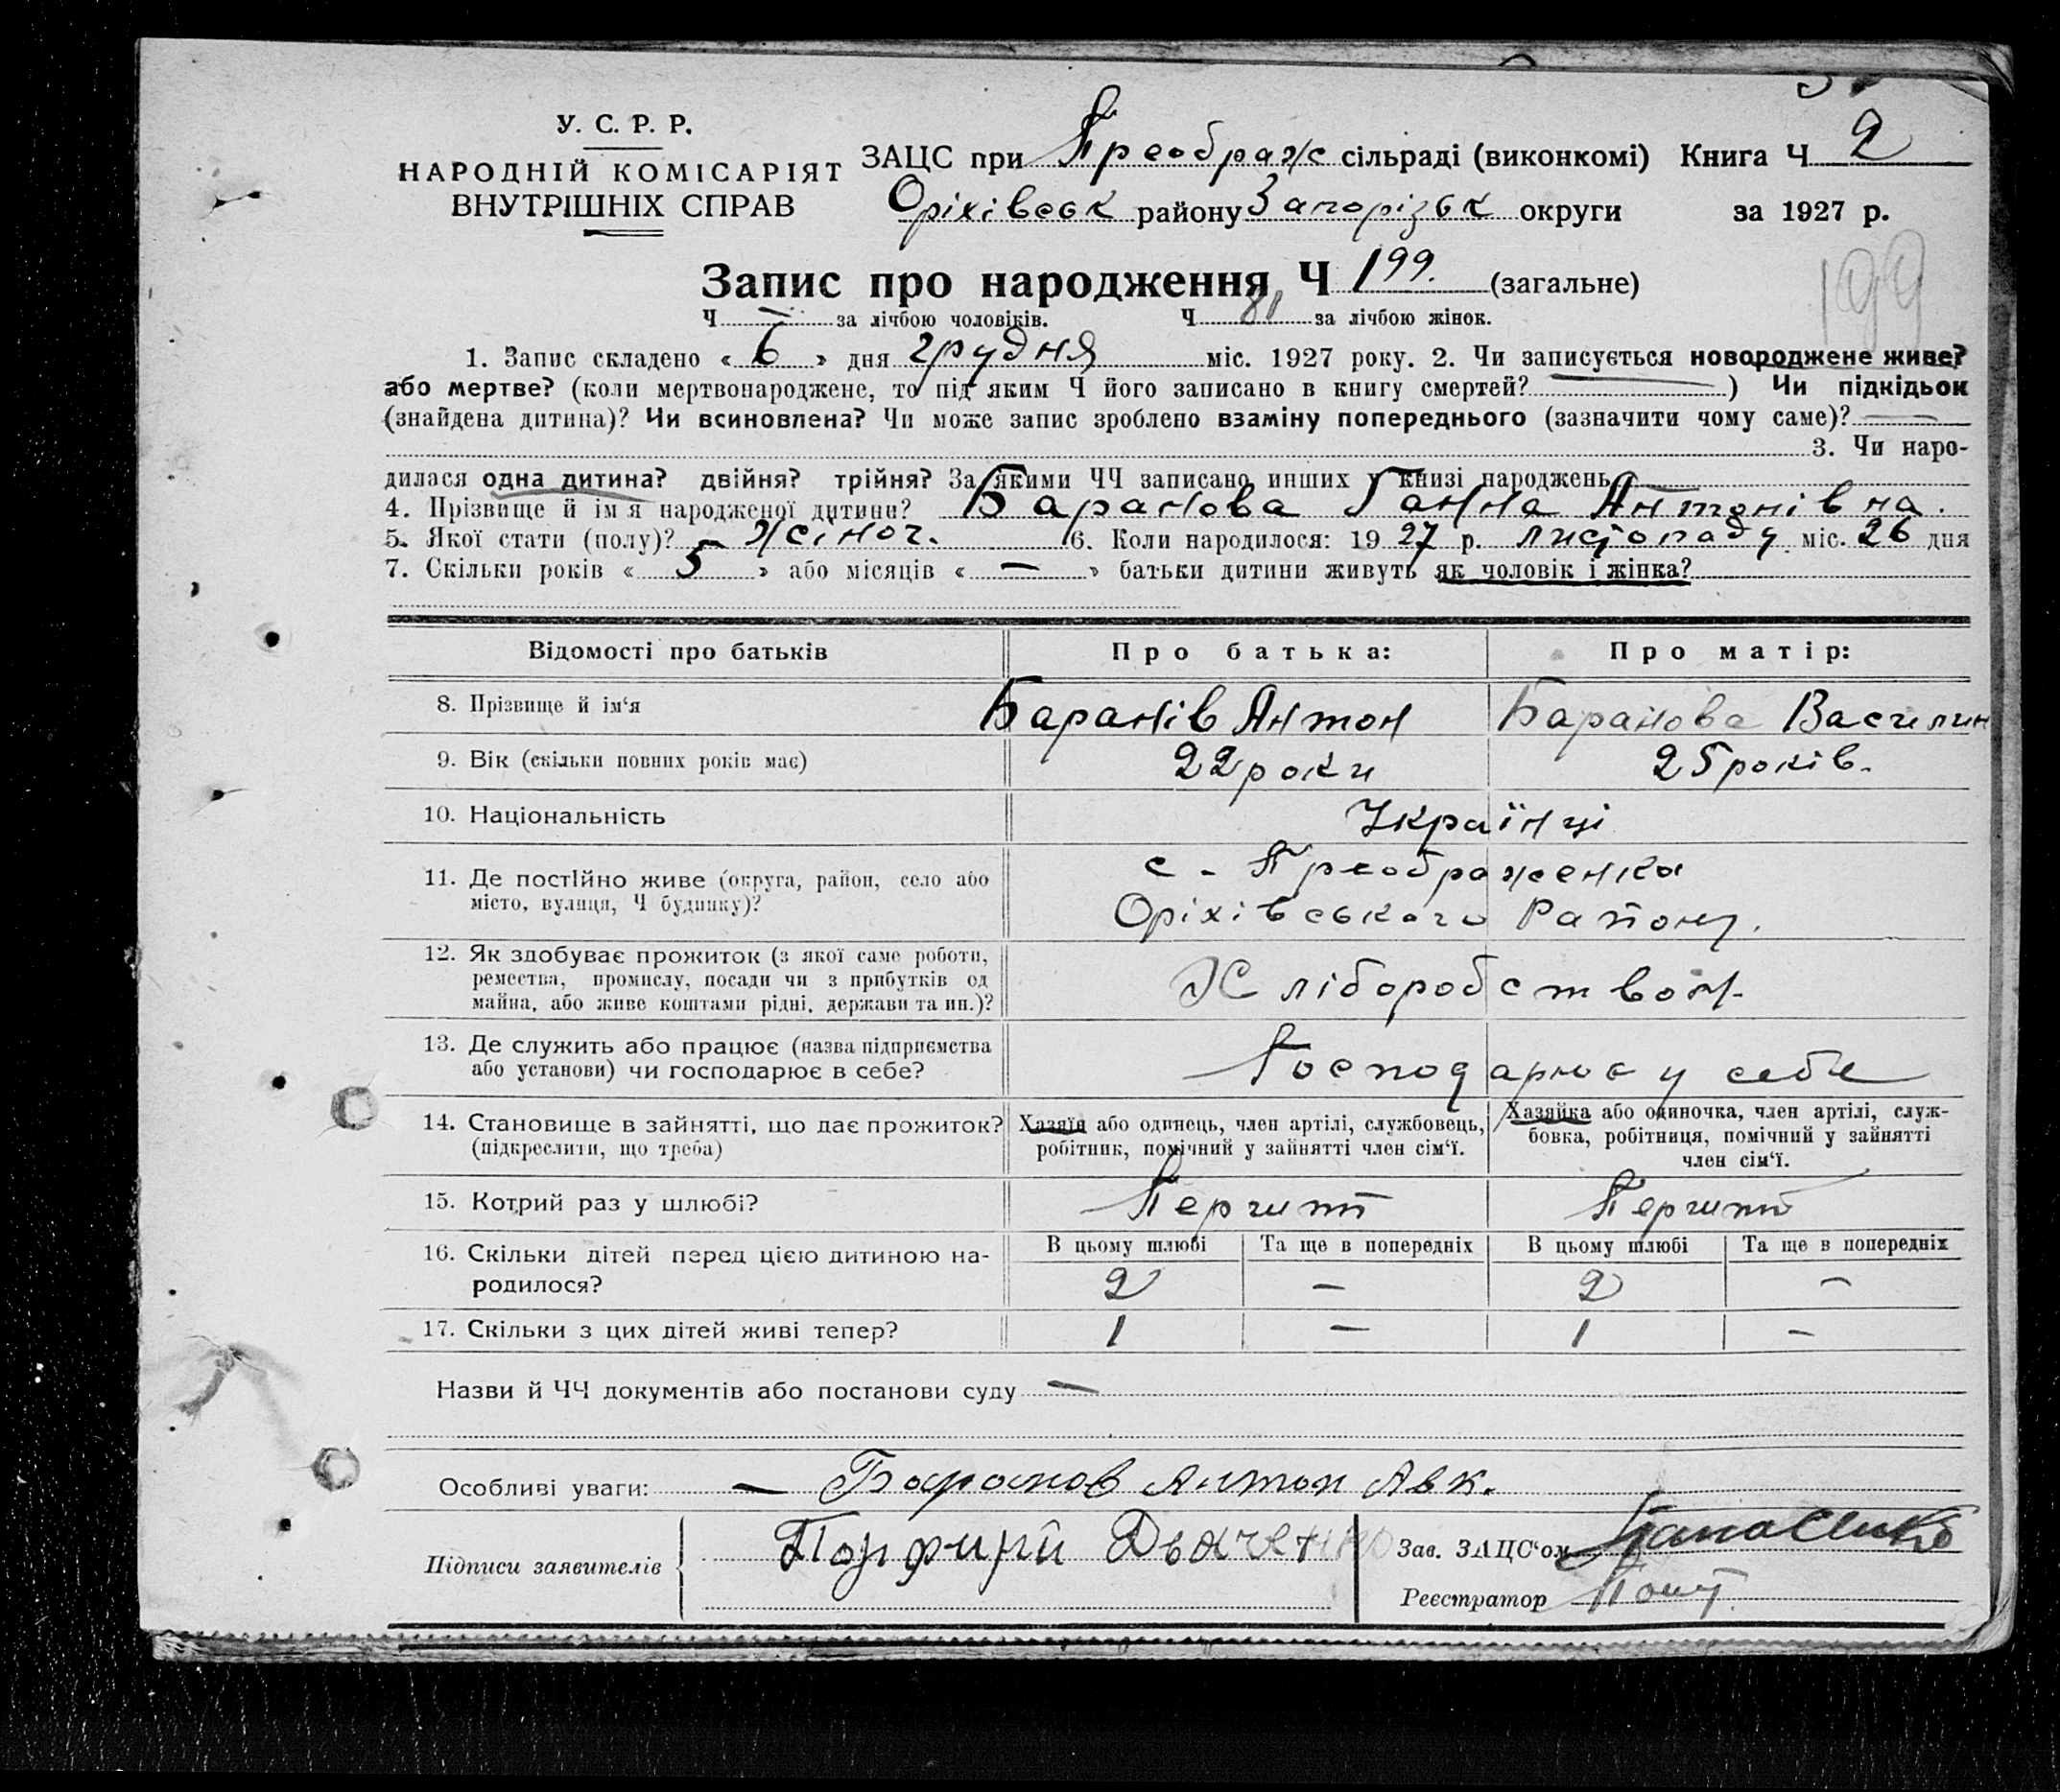 У. С. Р. Р.
НАРОДНІЙ КОМІСАРІЯТ
ВНУТРІШНІХ СПРАВ
ЗАЦС при Преображ сільраді (виконкомі) Книга Ч 2
Оріхівськ району Запорізьк округи за 1927 р.
Запис про народження Ч 199. (загальне)
199
Ч — за лічбою чоловіків. Ч 81 за лічбою жінок.
1. Запис складено « 6 » дня грудня міс. 1927 року. 2. Чи записується новороджене живе?
або мертве? (коли мертвонароджене, то під яким Ч його записано в книгу смертей? — ) Чи підкідьок
(знайдена дитина)? Чи всиновлена? Чи може запис зроблено взаміну попереднього (зазначити чому саме)? —
3. Чи наро-
дилася одна дитина? двійня? трійня? За якими ЧЧ записано инших у книзі народжень —
4. Прізвище й ім'я народженої дитини? Баранова Ганна Антонівна.
5. Якої стати (полу)? жіноч. 6. Коли народилося: 1927 р. листопаду міс. 26 дня
7. Скільки років « 5 » або місяців « — » батьки дитини живуть як чоловік і жінка?
Відомості про батьків Про батька: Про матір:
8. Прізвище й ім'я Баранів Антон Баранова Василин
9. Вік (скільки повних років має) 22 роки 25 років.
10. Національність Українці
11. Де постійно живе (округа, район, село або
місто, вулиця, Ч будинку)?
с. Преображенка
Оріхівського Району.
12. Як здобуває прожиток (з якої саме роботи,
ремества, промислу, посади чи з прибутків од
майна, або живе коштами рідні, держави та ин.)?
Хліборобством.
13. Де служить або працює (назва підприємства
або установи) чи господарює в себе?
Господарює у себе
14. Становище в зайнятті, що дає прожиток?
(підкреслити, що треба)
Хазяїн або одинець, член артілі, службовець,
робітник, помічний у зайнятті член сім'ї.
Хазяйка або одиночка, член артілі, служ-
бовка, робітниця, помічний у зайнятті
член сім'ї.
15. Котрий раз у шлюбі? Перший Перший
16. Скільки дітей перед цією дитиною на-
родилося?
В цьому шлюбі Та ще в попередніх В цьому шлюбі Та ще в попередніх
2 — 2 —
17. Скільки з цих дітей живі тепер? 1 — 1 —
Назви й ЧЧ документів або постанови суду —
Особливі уваги: — Баранов Антон Авк.
Підписи заявителів Порфирій Дьяченко
Зав. ЗАЦС'ом Панасенко
Реєстратор